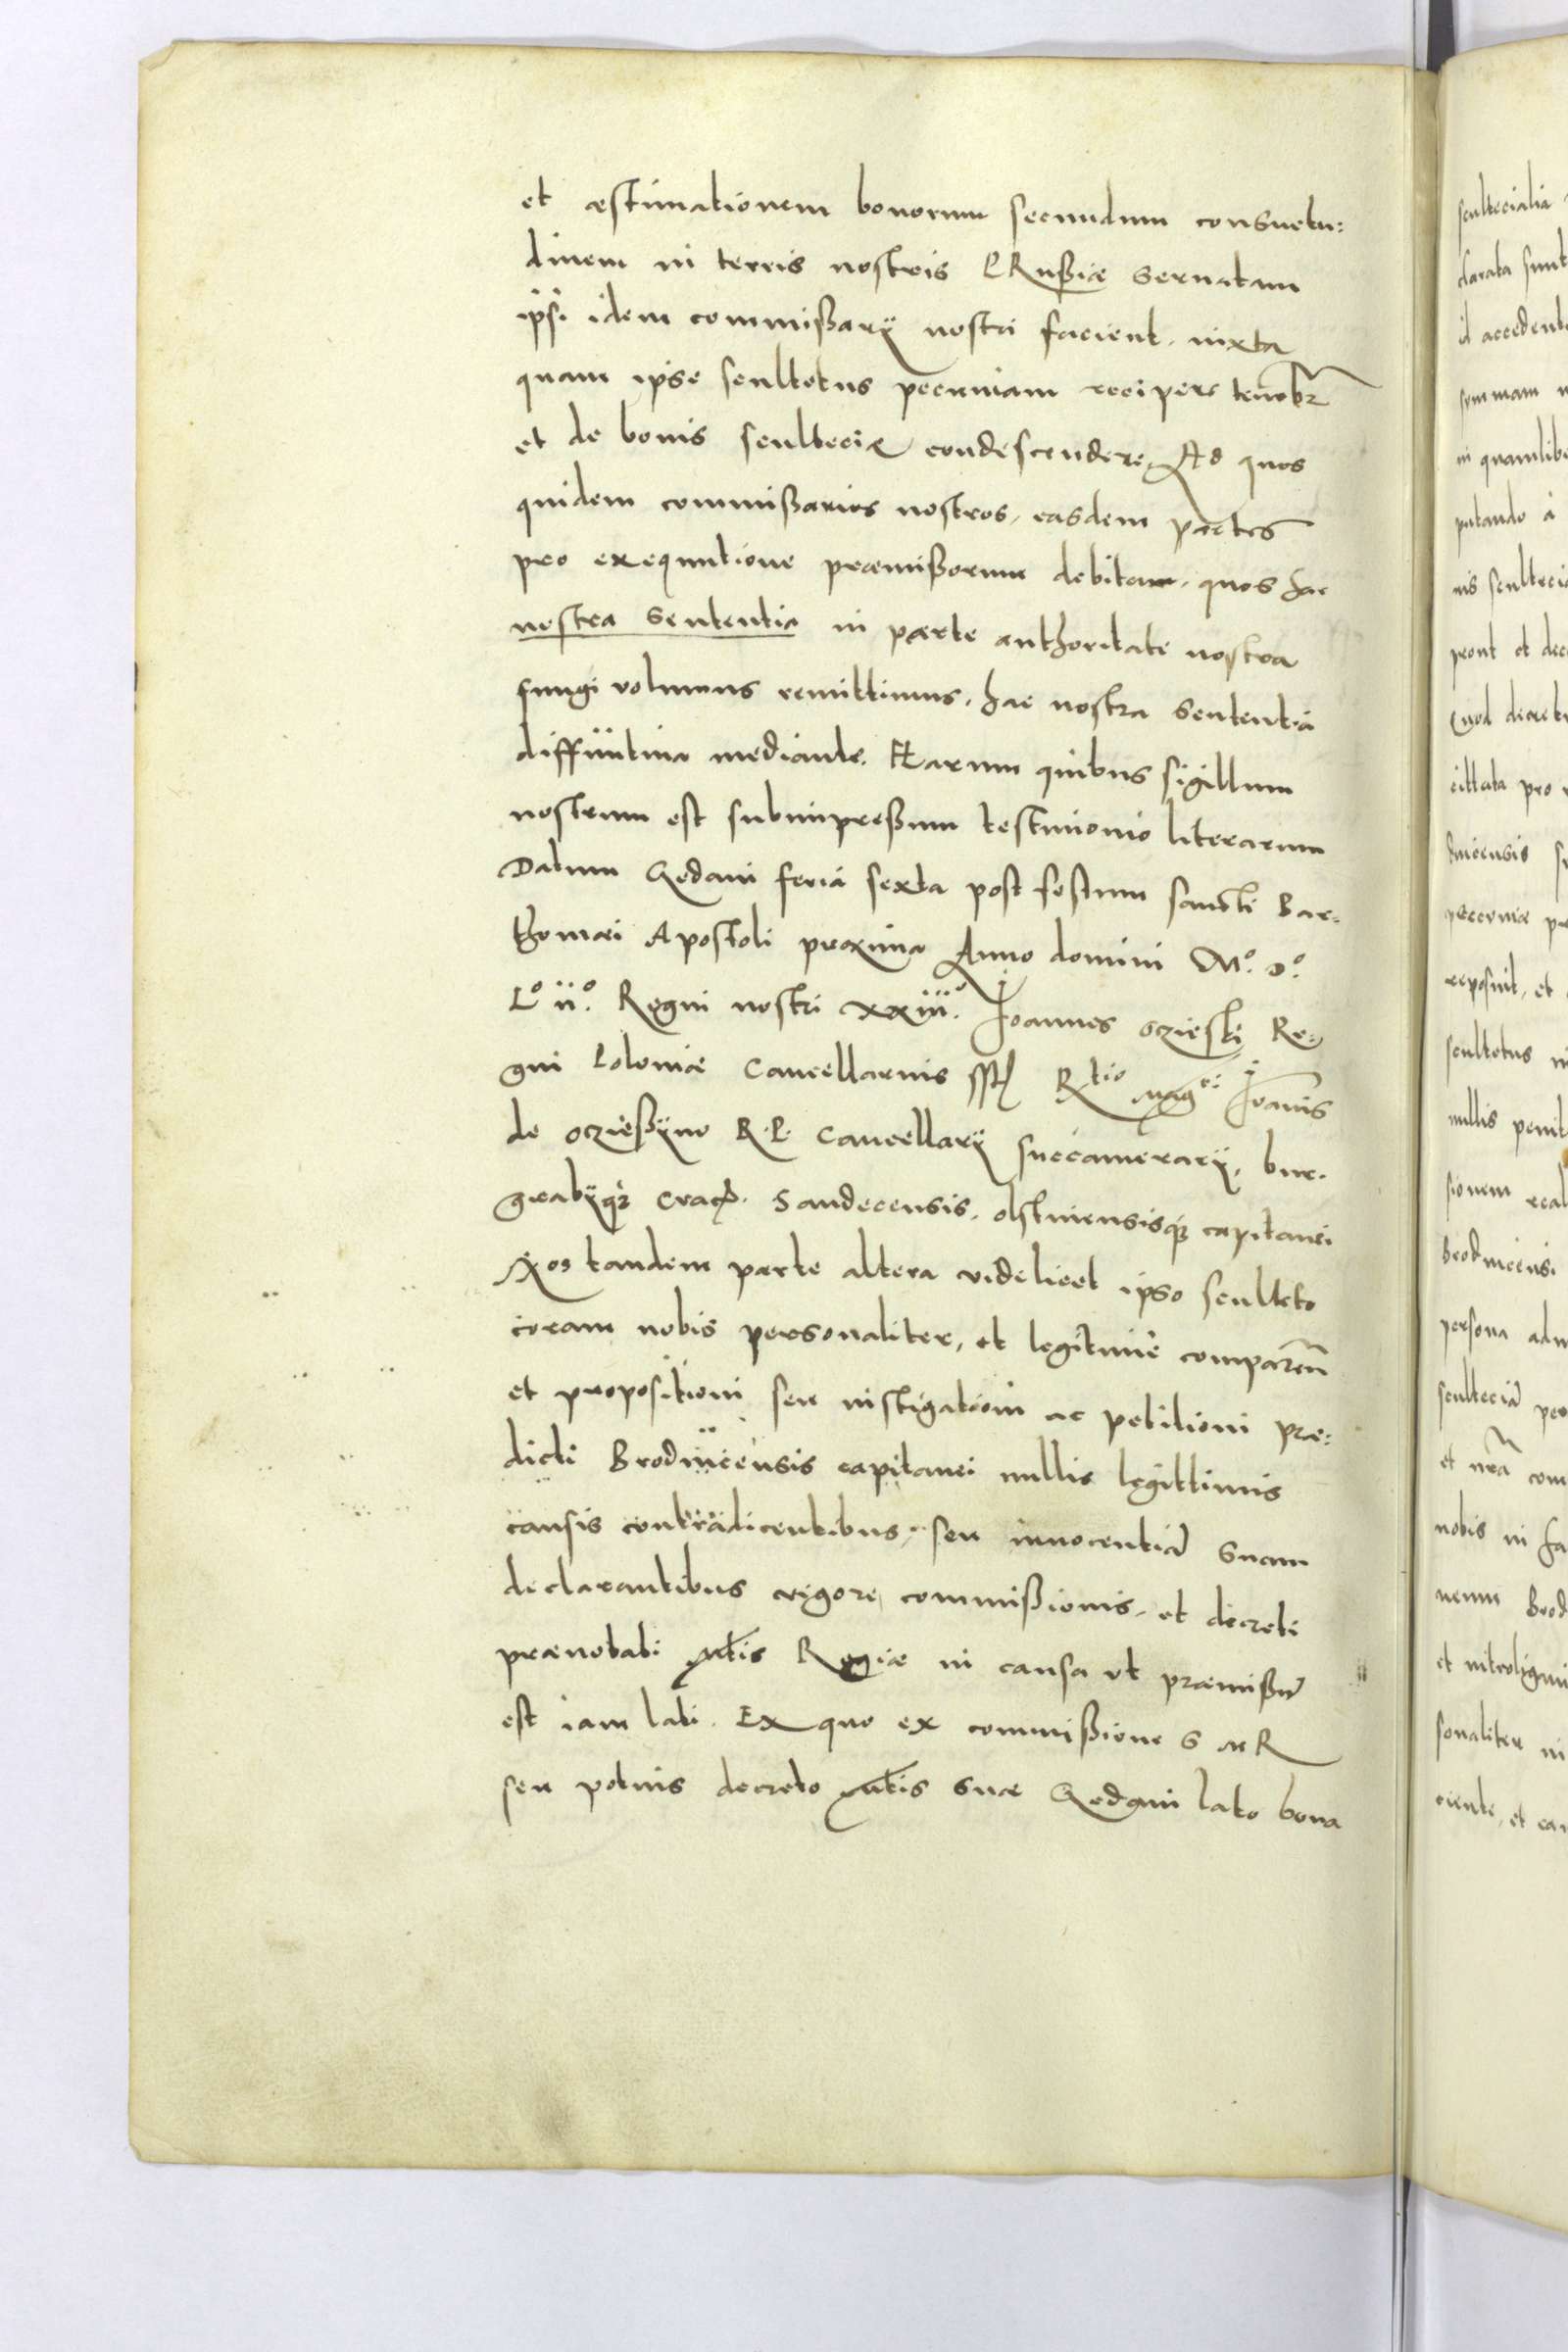 et æstimationem bonorum secundum consuetu:
dinem in terris nostris P Rußiæ seruatam
ipsi idem commißarij nostri facient. iuxta
quam ipse scultetus pecuniam recipere tenebr
et de bonis sculteciæ condescendere. Ad quos
quidem commißarios nostros, easdem partes
pro exequutione præmißorum debitam, quos hac
nostra sententia in parte authoritate nostra
fungi volumus remittimus. hac nostra sententia
diffinitiua mediante. Harum quibus sigillum
nostrum est subimpreßum testimonio literarum
Datum Gedani feria sexta post festum sancti Bar:
thomæi Apostoli proxima Anno domini Mº. Dº.
Lº. ijº. Regni nostri xxiijº. Joannes oczieski Re:
gni Poloniæ Cancellarius sst Rtio Magci Joannis
de oczießyno R. P. Cancellarij succamerarij, bur.
grabijq3 Crac. Sandecensis. olstinensisq3 capitanei
Nos tandem parte altera videlicet ipso sculteto
coram nobis personaliter, et legitimè comparen
et propositioni seu instigationi ac petitioni præ:
dicti Brodnicensis capitanei nullis legittimis
causis contradicentibus, seu innocentiā suam
declarantibus vigore commißionis, et decreti
prænotati Mtis Regiæ in causa vt præmißū
est iam lati. Ex quo ex commißione S M R
seu potius decreto Mtis suæ Gedani lato bona
scultecialia
clarata sunt
id accedent
summam
in quamlibe
putando a
nis sculteci
prout et dec
Quod decret
cittata pro
Brodnicensis
pecuniæ
reposuit, et
scultetus
nullis penit
sionem real
Brodnicensi
persona
scultecia per
et nrā com
nobis in fa
nenum Brod
et
sonaliter in
ciente, et